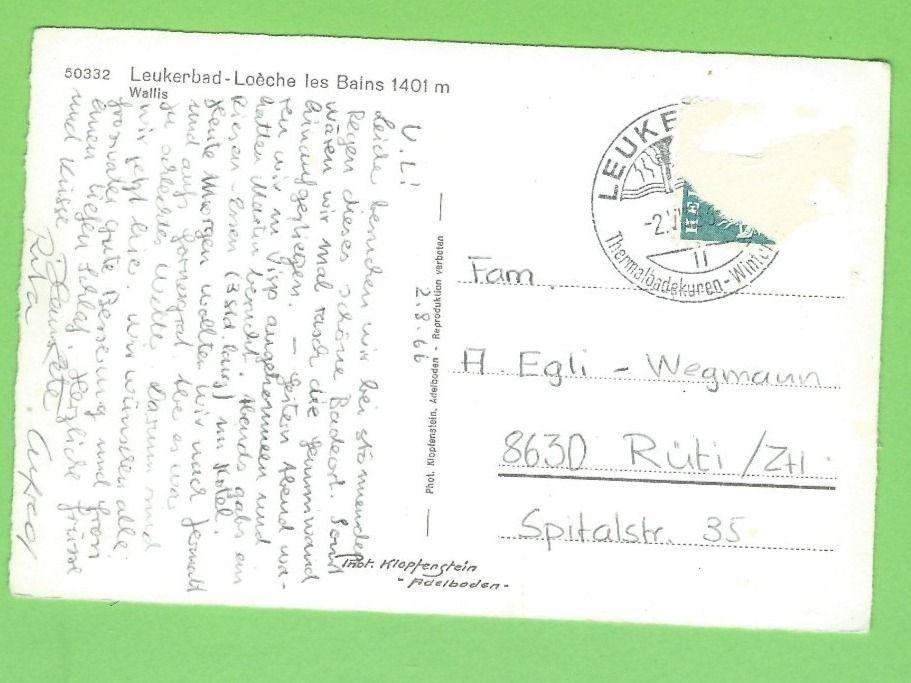 50332 Leukerbad-Loèche les Bains 1401 m
Wallis
V. L!
2.8.66
Leider besuchen wir bei strömendem
Regen dieses schöne Badeort. Sonst
wären wir mal rasch die Gemmiwand
hinaufgestiegen. – Gestern Abend wa-
ren wir in Visp angekommen und
hatten Martin besucht. Abends gabs ein
Riesen-Essen (3 Std lang) im Hotel.
Heute Morgen wollten wir nach Zermatt
und aufs Gornergrat. Aber es war
zu schlechtes Wetter. Darum sind
wir jetzt hier. Wir wünschen alle
Grossvater gute Besserung und
einen tiefen Schlaf. Herzliche Grüsse
und Küsse
Rita
Phot. Klopfenstein, Adelboden - Reproduktion verboten
Phot. Klopfenstein
- Adelboden -
LEUKE
-2.
II
Thermalbadekuren-Wint
HE
Fam.
A. Egli - Wegmann
8630 Rüti /ZH.
Spitalstr. 35